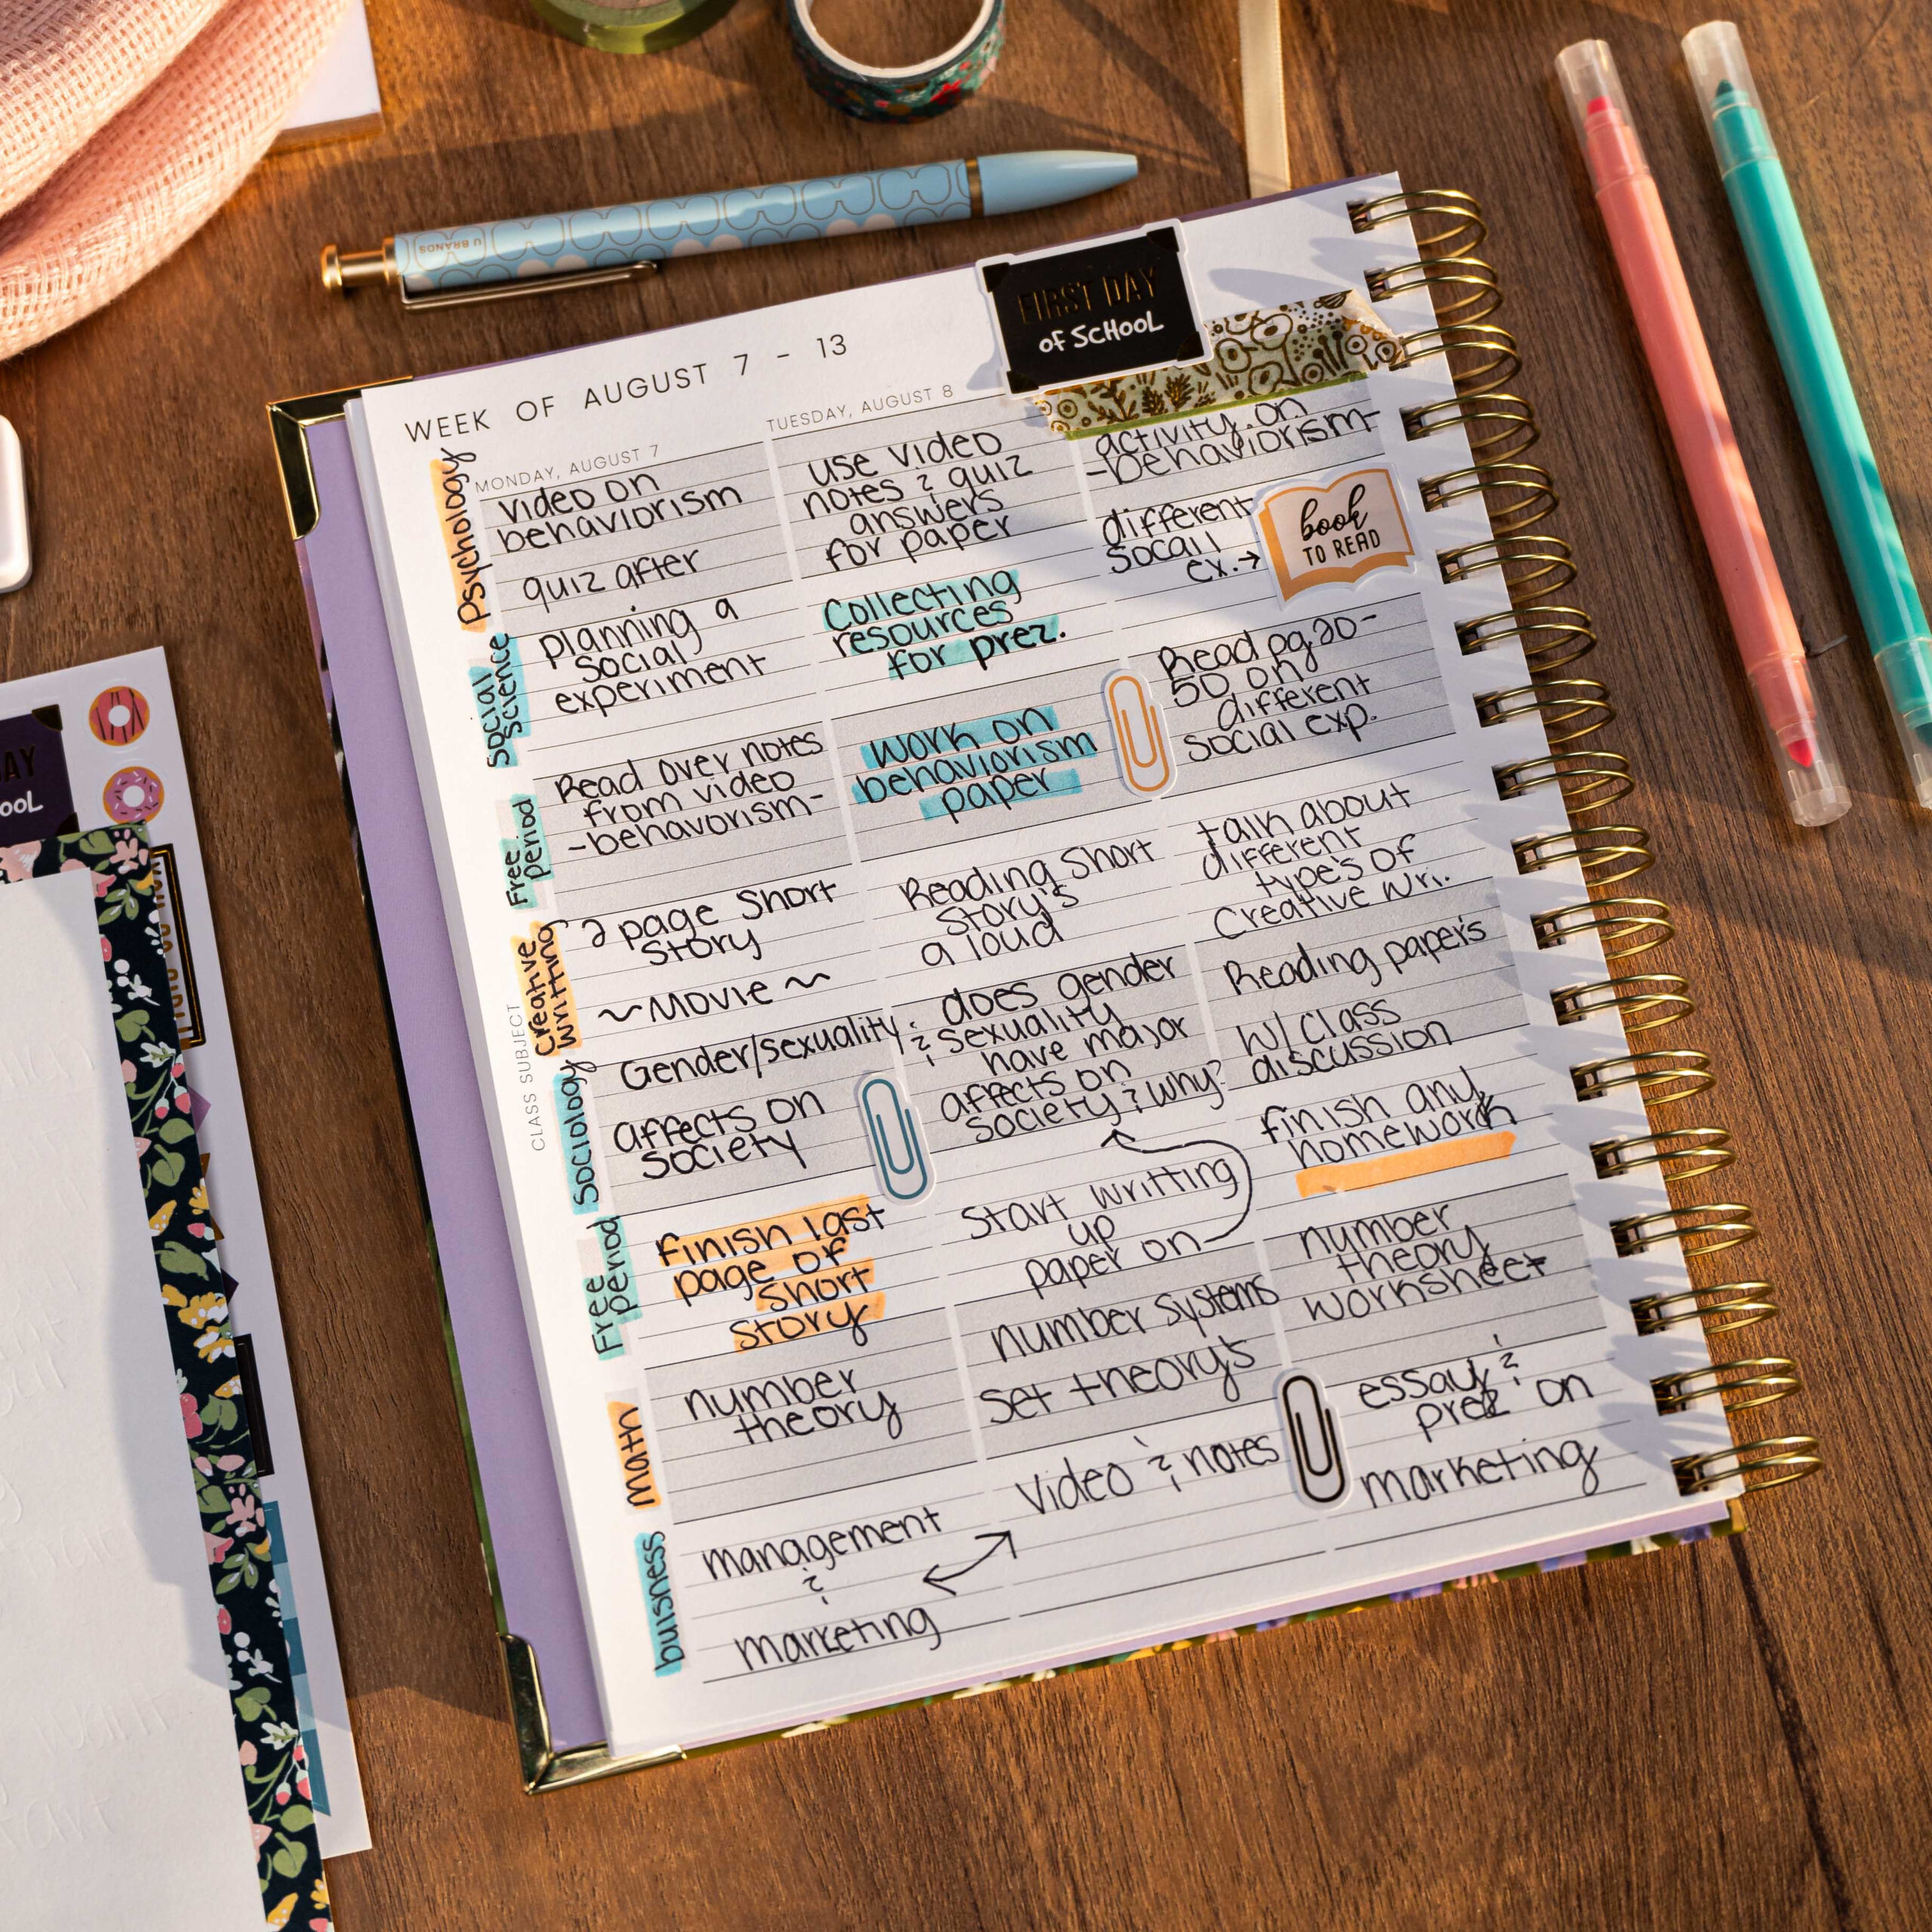 U BRANDS
FIRST DAY
of SCHOOL
WEEK OF AUGUST 7 - 13
MONDAY, AUGUST 7
TUESDAY, AUGUST 8
Psychology
video on
behaviorism
quiz after
use video
notes & quiz
answers
for paper
activity on
-behaviorism-
Social
Science
planning a
social
experiment
Collecting
resources
for prez.
different
socail
ex.→
book
TO READ
Free
period
Read over notes
from video
-behavorism-
work on
behaviorism
paper
Read pg. 20-
50 on
different
social exp.
CLASS SUBJECT
Creative
writting
2 page short
story
~Movie~
Reading short
story's
a loud
talk about
different
type's of
Creative wri.
Sociology
Gender/sexuality
affects on
society
does gender
& sexuality
have major
affects on
society & why?
Reading paper's
w/ class
discussion
Free
period
finish last
page of
short
story
Start writting
up
paper on
finish any
homework
math
number
theory
number systems
set theory's
number
theory
worksheet
buisness
management
&
marketing
video & notes
essay &
prez on
marketing
AY
OOL